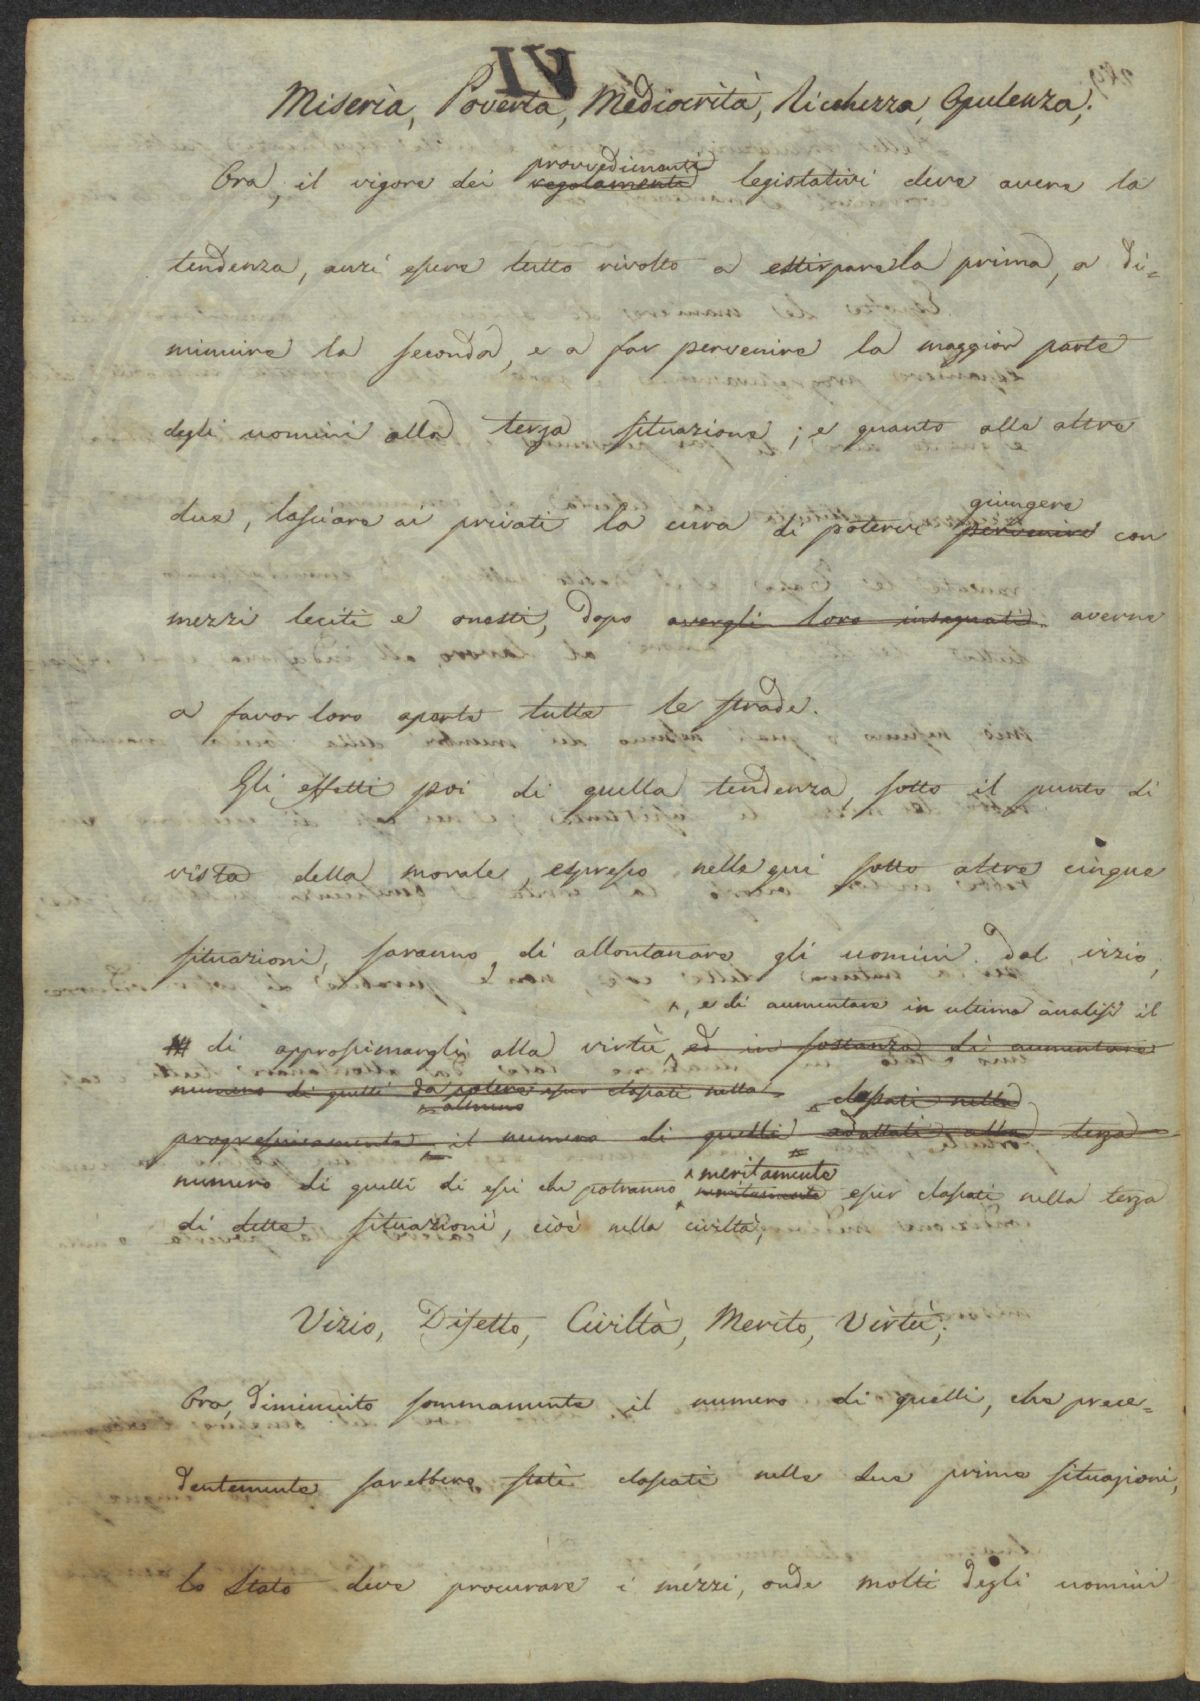 IV
Miseria, Povertà, Mediocrità, Ricchezza, Opulenza;
provvedimenti
Ora, il vigore dei regolamenti legislativi deve avere la
tendenza, anzi essere tutto rivolto a estirpare la prima, a di=
minuire la seconda, e a far pervenire la maggior parte
degli uomini alla terza situazione; e quanto alle altre
giungere
due, lasciare ai privati la cura di potervi pervenire con
mezzi leciti e onesti, dopo avergli loro insegnati averne
a favor loro aperte tutte le strade.
Gli effetti poi di quella tendenza, sotto il punto di
vista della morale, espresso nelle qui sotto altre cinque
situazioni, saranno di allontanare gli uomini dal vizio,
, e di aumentare in ultima analisi il
di approssimargli alla virtù ed in sostanza di aumentare
numero di quelli da potere esser classati nella classati nella
almeno
progressivamente il numero di quelli adattati alla terza
meritamente
numero di quelli di essi che potranno meritamente esser classati nella terza
di dette situazioni, cioè nella civiltà;
Vizio, Difetto, Civiltà, Merito, Virtù;
Ora, diminuito sommamente il numero di quelli, che prece=
dentemente sarebbero stati classati nelle due prime situazioni,
lo Stato deve procurare i mezzi, onde molti degli uomini